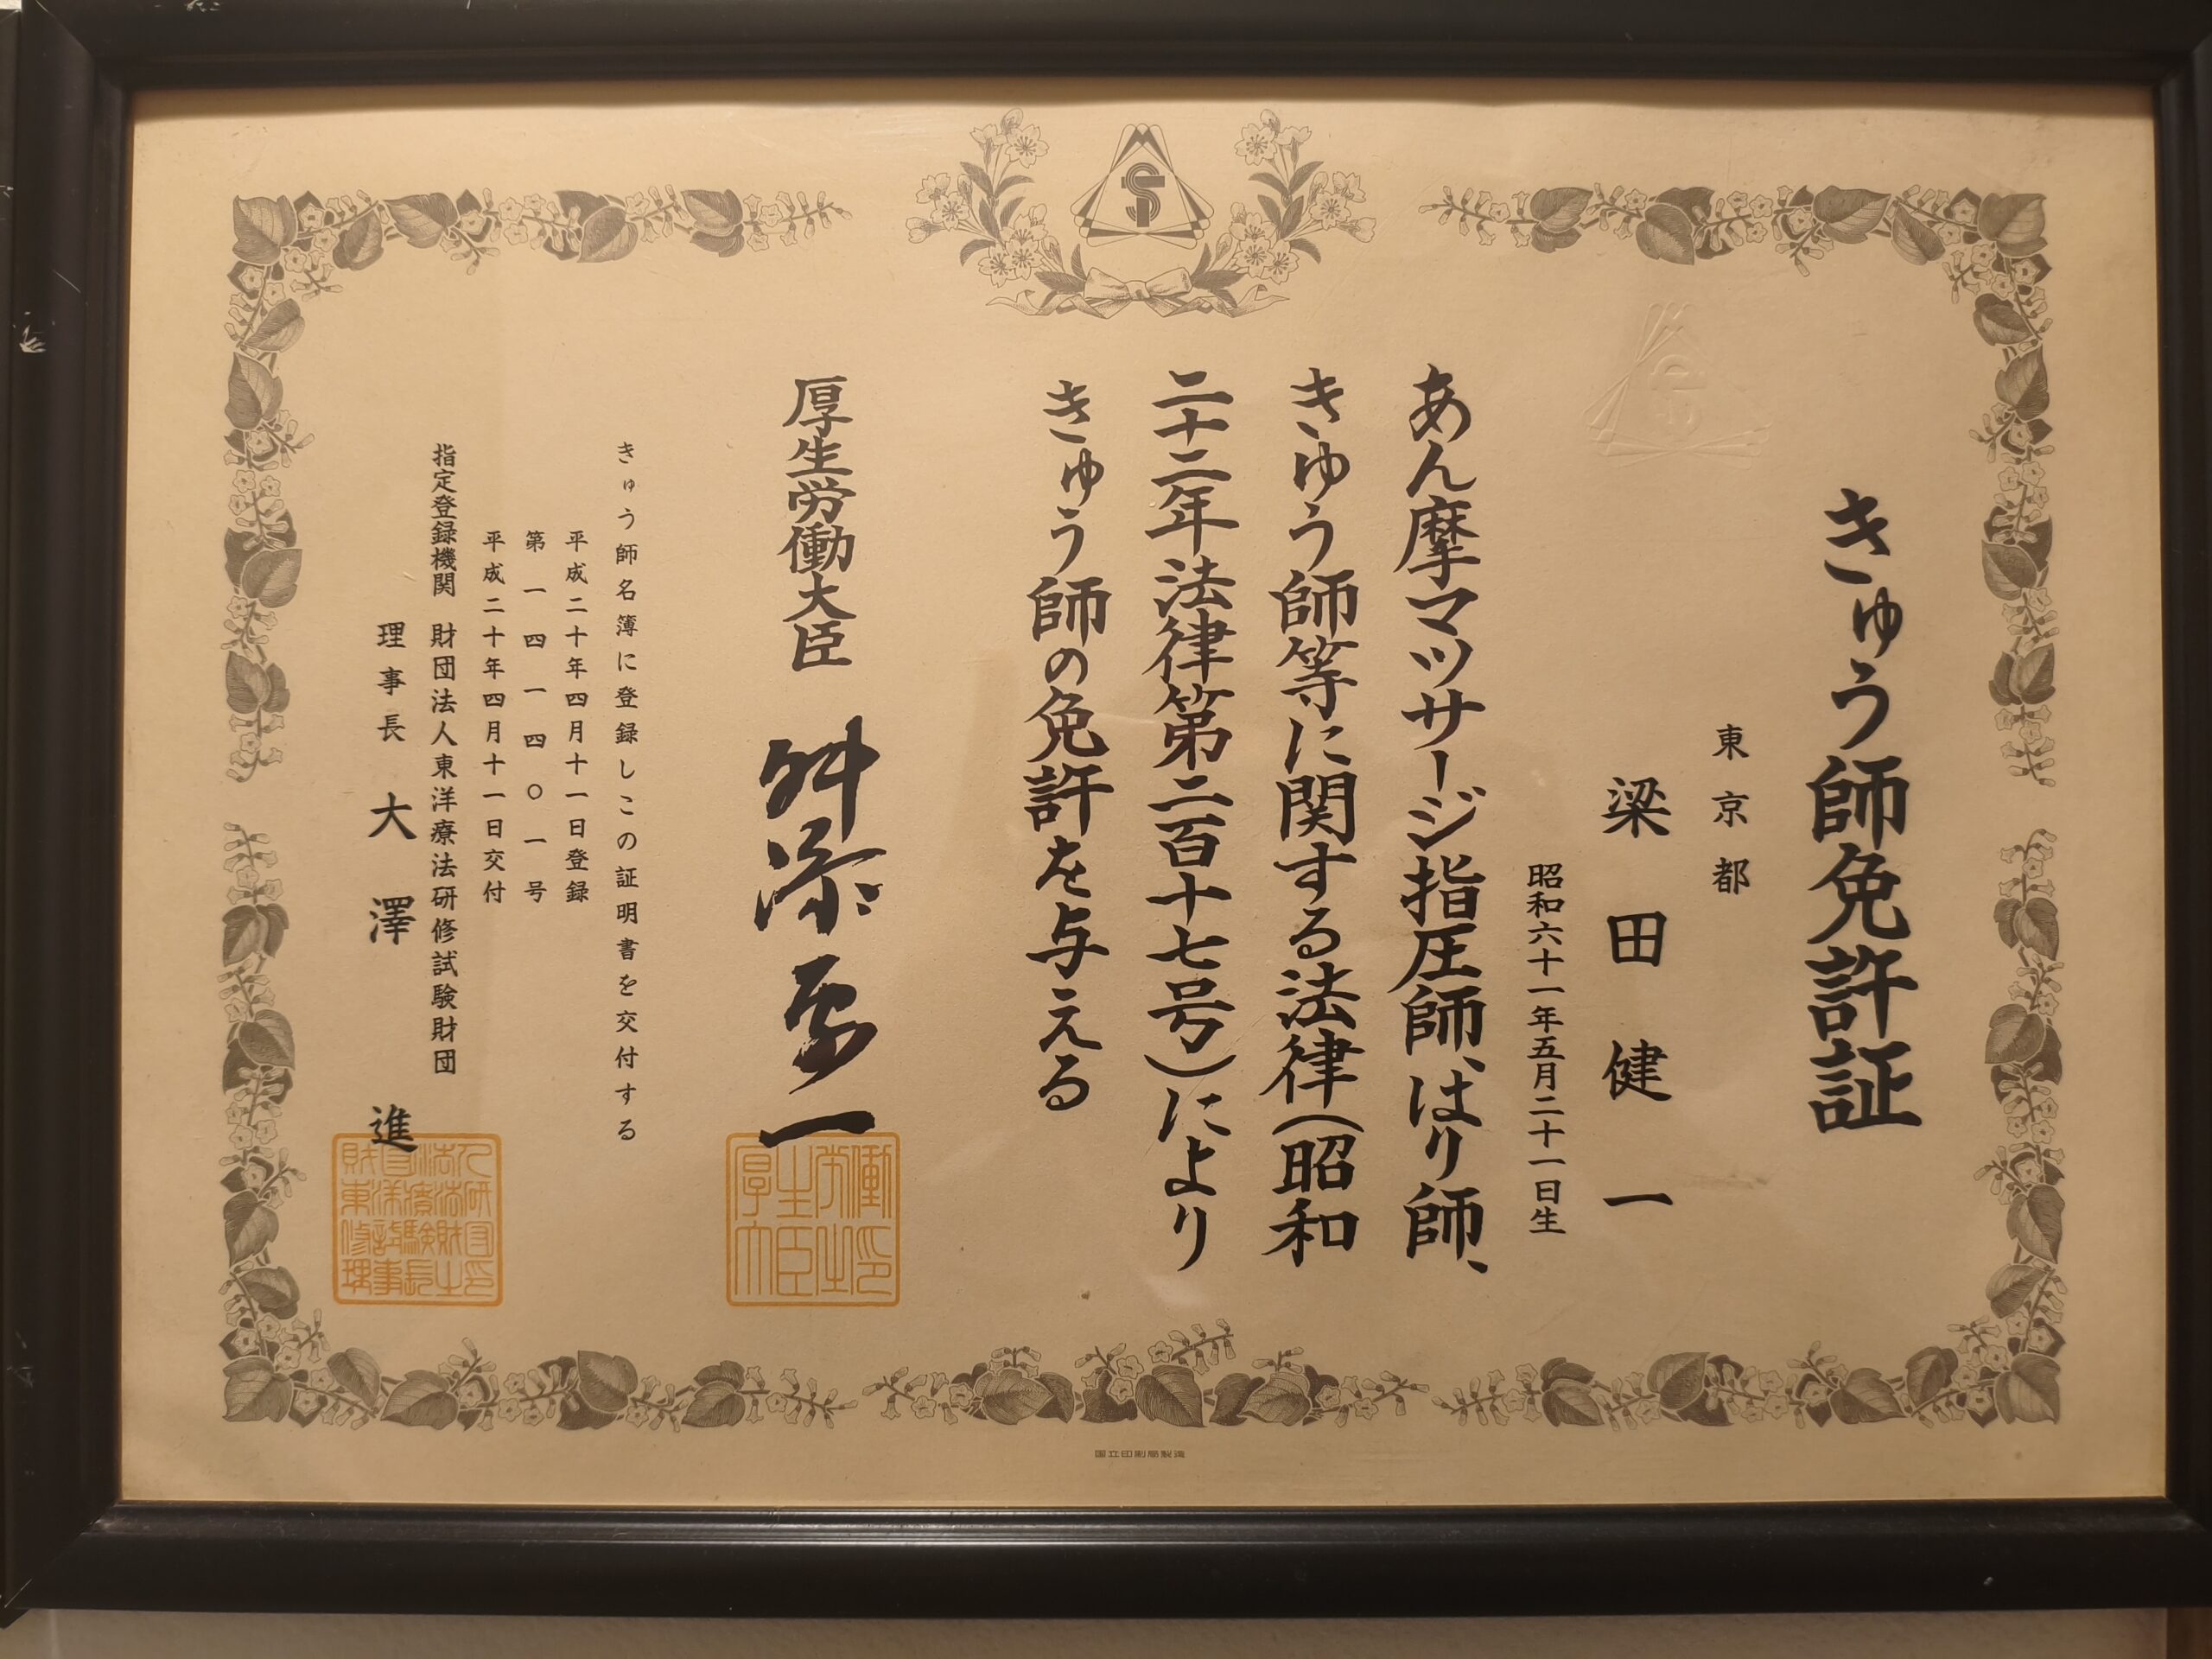 きゅう師免許証
東京都
梁田健一
昭和六十一年五月二十一日生
あん摩マツサージ指圧師、はり師、
きゆう師等に関する法律(昭和
二十二年法律第二百十七号)により
きゅう師の免許を与える
厚生労働大臣 舛添要一
きゅう師名簿に登録しこの証明書を交付する
平成二十年四月十一日登録
第一四一四〇一号
平成二十年四月十一日交付
指定登録機関 財団法人東洋療法研修試験財団
理事長 大澤進
国立印刷局製造